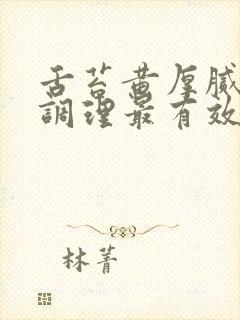 舌苔黄厚膩
調理最有效
林菁